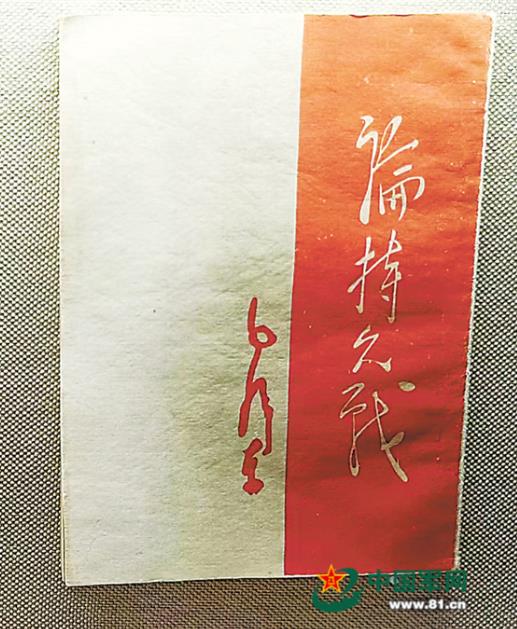 論持久戰
毛澤东
中国军网
www.81.cn